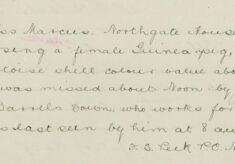 ss Marcus. Northgate House
sing a female Guinea-pig,
toise shell colour value abo
was missed about Noon by
Barrels Down, who works for
s last seen by him at 8 au
F. S. Peck P.C. N